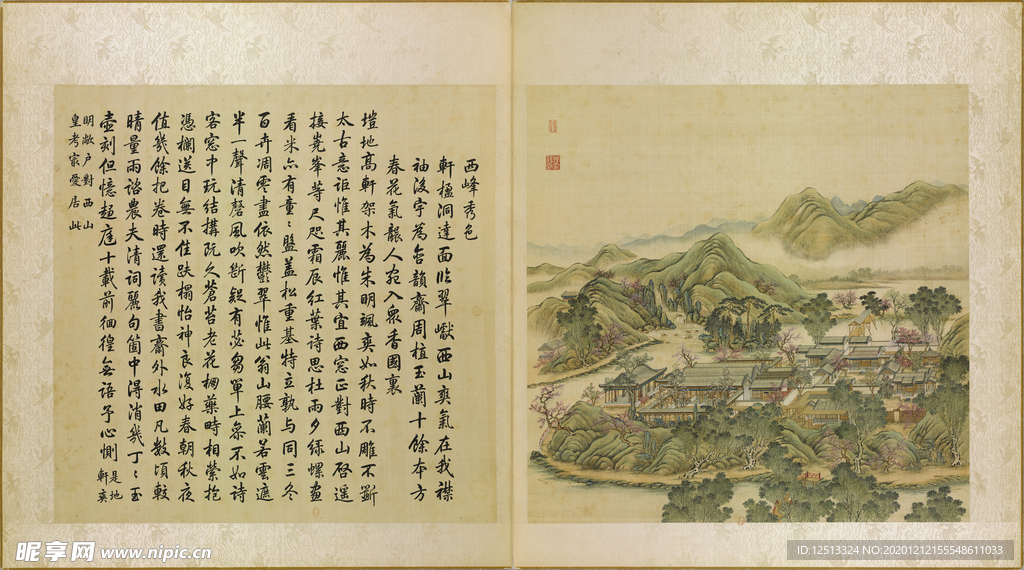 西峰秀色
軒楹洞達面臨翠巘西山爽氣在我襟
袖後宇為含韻齋周植玉蘭十餘本方
春花氣襲人宛入眾香國裏
塏地高軒架木為朱明颯爽如秋時不雕不斲
太古意詎惟其麗惟其宜西窓正對西山啓遥
接嶤峯等尺咫霜辰紅葉詩思杜雨夕綠螺畫
看米亦有童〻盤蓋松重基特立孰与同三冬
百卉凋零盡依然鬱翠惟此翁山腰蘭若雲遮
半一聲清磬風吹斷疑有苾芻單上參不如詩
客窓中玩結搆既久蒼苔老花棚藥畤相縈抱
憑欄送目無不佳趺榻怡神良復好春朝秋夜
值幾餘把卷時還讀我書齋外水田凡數頃較
晴量雨諮農夫清詞麗句箇中得消幾丁〻玉
壺刻但憶趨庭十載前徊徨無語予心惻
是地
軒爽
明敞户對西山
皇考最愛居此
昵享网 www.nipic.cn
ID:12513324 NO:20201212155548611033